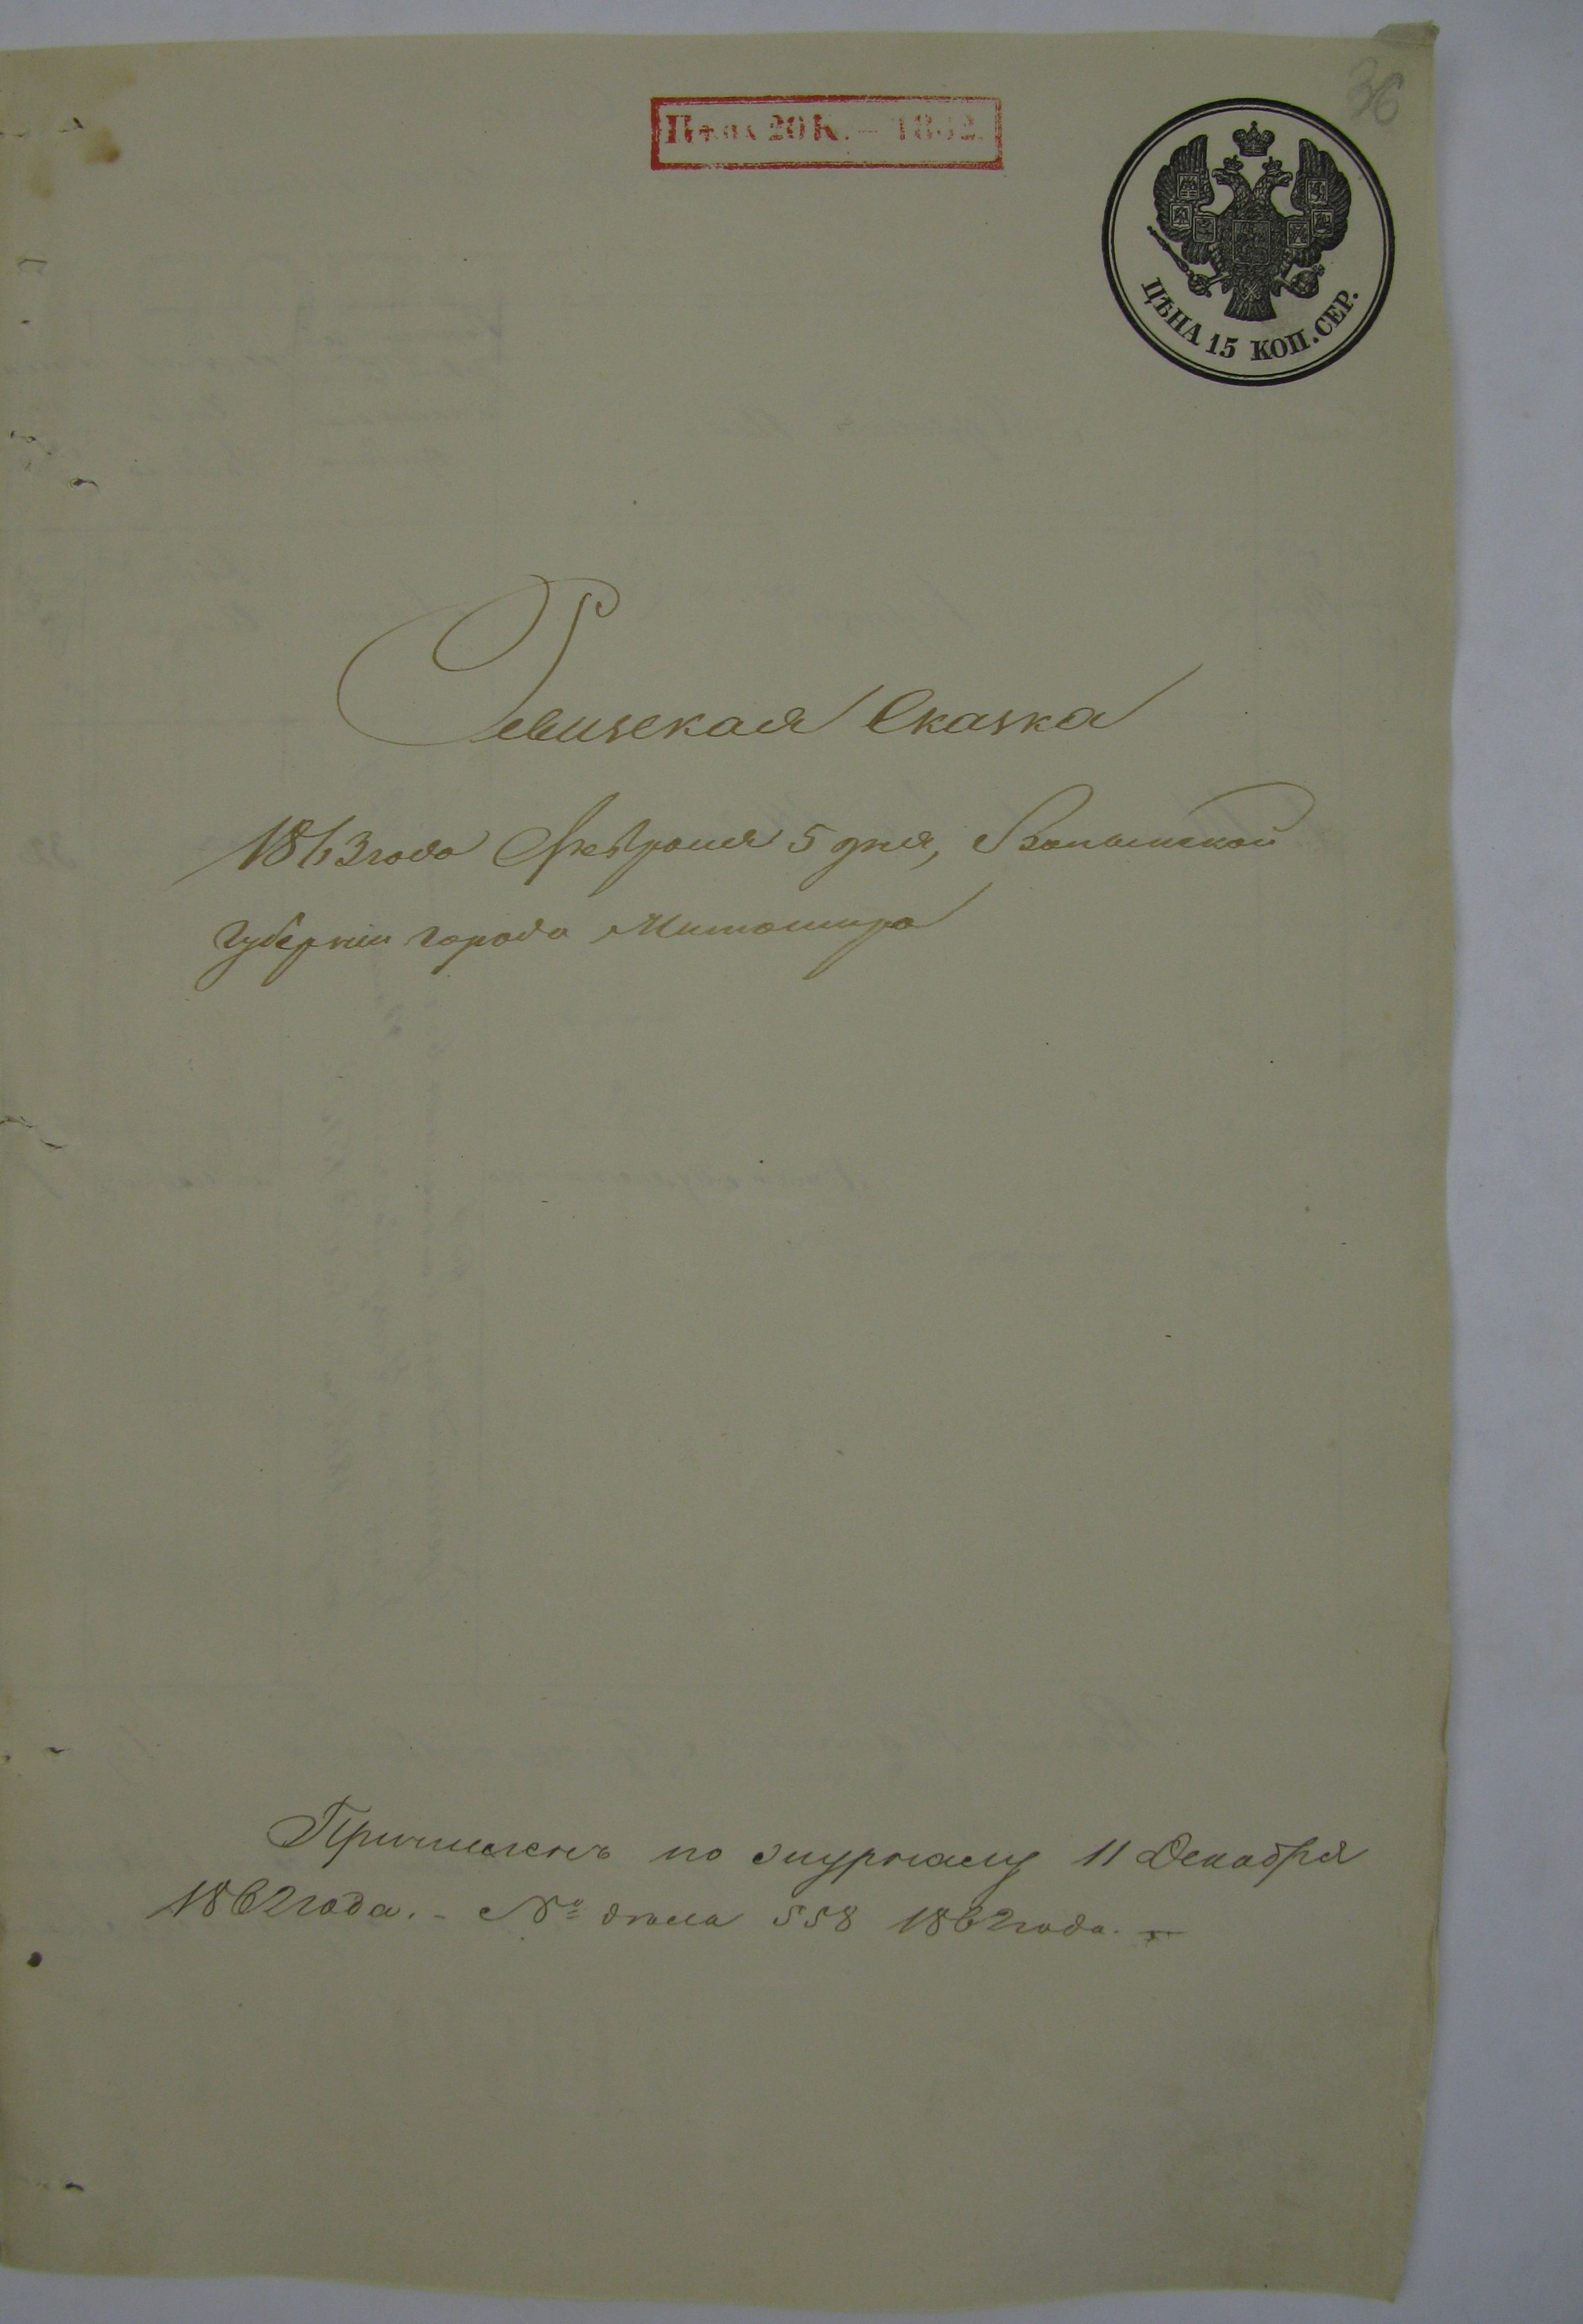 36
Цѣна 20 К. — 1862.
ЦѢНА 15 КОП. СЕР.
Ревизская Сказка
1863 года Февраля 5 дня, Волынской
губерніи города Житомира
Причисленъ по журналу 11 Декабря
1862 года. - № дѣла 558 1862 года. -